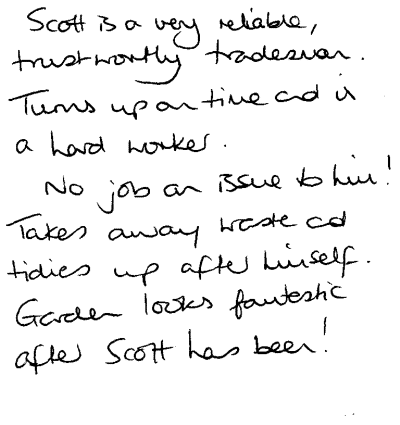 Scott is a very reliable,
trustworthy tradesman.
Turns up on time and is
a hard worker.
No job an issue to him!
Takes away waste and
tidies up after himself.
Garden looks fantastic
after Scott has been!